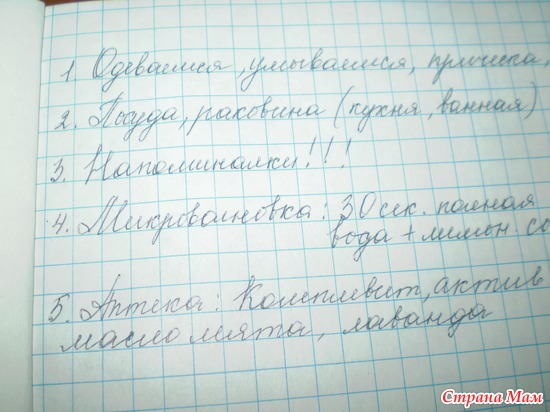 1. Одеваемся, умываемся, прическа,
2. Посуда, раковина (кухня, ванная)
3. Напоминалки!!!
4. Микроволновка: 30 сек. полная
вода + лимон. со
5. Аптека: Комплевит, актив
масло мята, лаванда
Страна Мам